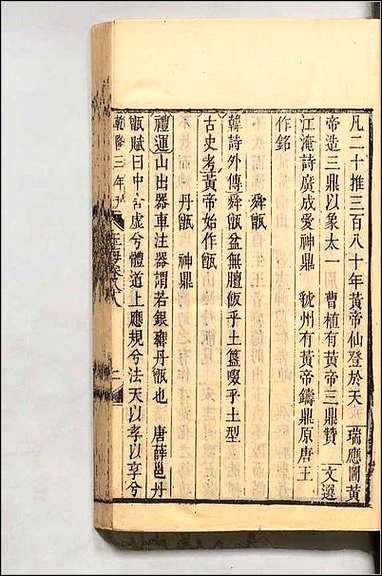 凡二十推三百八十年黃帝仙登於天 瑞應圖黃
帝造三鼎以象太一 曹植有黃帝三鼎贊 文選
江淹詩廣成愛神鼎 虢州有黃帝鑄鼎原唐王
作銘
舜甑
韓詩外傳舜甑盆無膻飯乎土簋啜乎土型
古史考黃帝始作甑
丹甑 神鼎
禮運山出器車注器謂若銀甕丹甑也 唐薛邕丹
甑賦曰中含虛兮體道上應規兮法天以孝以享兮
乾隆三年
玉海卷八八